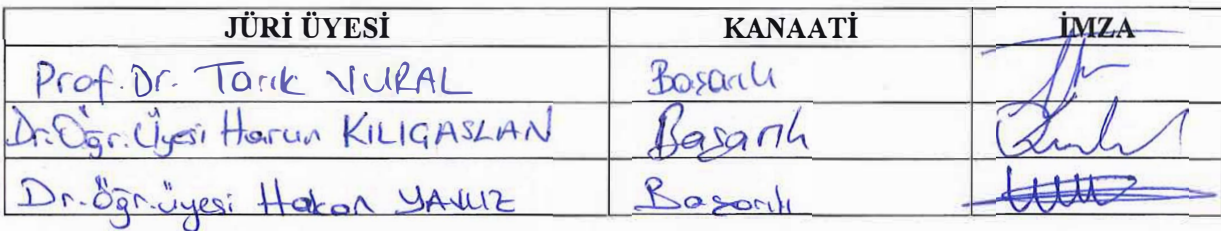 JÜRİ ÜYESİ KANAATİ İMZA
Prof. Dr. Tarık VURAL Başarılı
Dr. Öğr. Üyesi Harun KILIÇASLAN Başarılı
Dr. Öğr. üyesi Hakan YAVUZ Başarılı